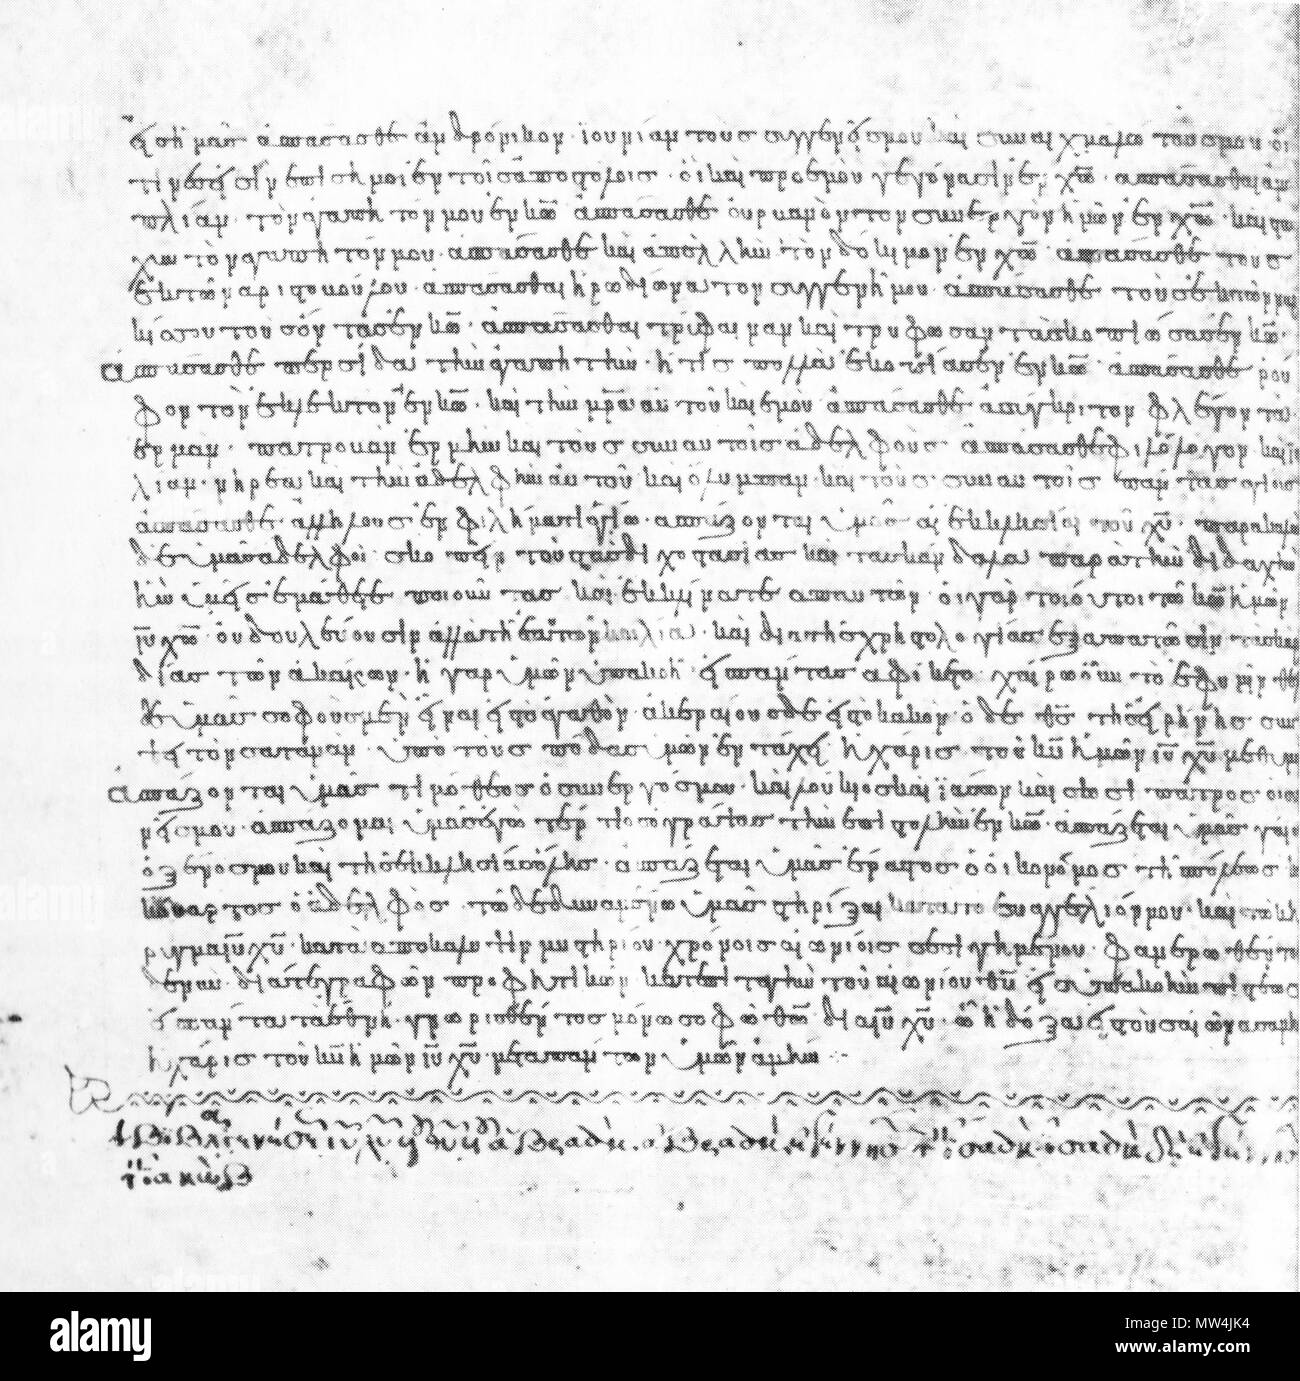 εἰς ἡμᾶς ἀσπάσασθε ἀνδρόνικον· ἰουνίαν τοὺς συγγενεῖς μου καὶ συναιχμαλώτους μου οἵ
τινές εἰσιν ἐπίσημοι ἐν τοῖς ἀποστόλοις· οἳ καὶ πρὸ ἐμοῦ γεγόνασιν ἐν χῶ· ἀσπάσασθαι ἀμ
πλίαν· τὸν ἀγαπητόν μου ἐν κῶ ἀσπάσασθε οὐρβανὸν τὸν συνεργὸν ἡμῶν ἐν χῶ· καὶ στά
χυν τὸν ἀγαπητόν μου· ἀσπάσασθε καὶ ἀπελλὴν τὸν δόκιμον ἐν χῶ ἀσπάσασθε τοὺς
ἐκ τῶν ἀριστοβούλου· ἀσπάσασθαι ἡρωδίωνα τὸν συγγενῆ μου· ἀσπάσασθε τοὺς ἐκ τῶν ναρ
κίσσου τοὺς ὄντας ἐν κῶ· ἀσπάσασθαι τρύφαιναν καὶ τρυφῶσαν τὰς κοπιώσας ἐν κῶ·
ἀσπάσασθε περσίδα τὴν ἀγαπητὴν· ἥτις πολλὰ ἐκοπίασεν ἐν κῶ· ἀσπάσασθε ροῦ
φον τὸν ἐκλεκτὸν ἐν κῶ· καὶ τὴν μρα αὐτοῦ καὶ ἐμοῦ ἀσπάσασθε ἀσύγκριτον φλέγοντα
ἑρμᾶν· πατρόβαν ἑρμὴν καὶ τοὺς σὺν αὐτοῖς ἀδελφοὺς ἀσπάσασθε φιλόλογον· καὶ ἰου
λίαν· νηρέα καὶ τὴν ἀδελφὴν αὐτοῦ καὶ ὀλυμπᾶν· καὶ τοὺς σὺν αὐτοῖς πάντας ἁγίους
ἀσπάσασθε ἀλλήλους ἐν φιλήματι ἁγίω· ἀσπάζονται ὑμᾶς αἱ ἐκκλησίαι τοῦ χῦ· παρακαλῶ
δὲ ὑμᾶς ἀδελφοὶ σκοπεῖν τοὺς τὰς διχοστασίας καὶ τὰ σκάνδαλα παρὰ τὴν διδαχὴν
ἣν ὑμεῖς ἐμάθετε ποιοῦντας καὶ ἐκκλίνατε ἀπ' αὐτῶν· οἱ γὰρ τοιοῦτοι τῶ κῶ ἡμῶν
ιυ χῶ· οὐ δουλεύουσιν ἀλλὰ τῆ ἑαυτῶν κοιλία· καὶ διὰ τῆς χρηστολογίας ἐξαπατῶσιν τὰς καρ
δίας τῶν ἀκάκων· ἡ γὰρ ὑμῶν ὑπακοὴ εἰς πάντας ἀφίκετο· χαίρω οὖν τὸ ἐφ' ὑμῖν θέλω
δὲ ὑμᾶς σοφοὺς μὲν εἶναι εἰς τὸ ἀγαθὸν· ἀκεραίους δὲ εἰς τὸ κακὸν· ὁ δὲ θς τῆς εἰρήνης συν
τρίψει τὸν σατανᾶν· ὑπὸ τοὺς πόδας ὑμῶν ἐν τάχει· ἡ χάρις τοῦ κυ ἡμῶν ιυ χυ μεθ' ὑμῶν
ἀσπάζονται ὑμᾶς τιμόθεος ὁ συνεργός μου· καὶ λούκιος καὶ ἰάσων καὶ σωσίπατρος· οἱ συγγε
νεῖς μου· ἀσπάζομαι ὑμᾶς ἐγὼ τέρτιος ὁ γράψας τὴν ἐπιστολὴν ἐν κῶ· ἀσπάζεται ὑμᾶς γάιος
ὁ ξένος μου καὶ τῆς ἐκκλησίας ὅλης· ἀσπάζεται ὑμᾶς ἔραστος ὁ οἰκονόμος τῆς πόλεως καὶ
κούαρτος ὁ ἀδελφός· τῶ δὲ δυναμένω ὑμᾶς στηρίξαι κατὰ τὸ εὐαγγέλιόν μου· καὶ τὸ κή
ρυγμα ιυ χυ· κατὰ ἀποκάλυψιν μυστηρίου· χρόνοις αἰωνίοις σεσιγημένου· φανερωθέντος
δὲ νῦν· διά τε γραφῶν προφητικῶν κατ' ἐπιταγὴν τοῦ αἰωνίου θυ εἰς ὑπακοὴν πίστεως
εἰς πάντα τὰ ἔθνη· γνωρισθέντος μόνω σοφῶ θῶ· διὰ ιυ χυ· ὧ ἡ δόξα εἰς τοὺς αἰῶνας ἀμήν
ἡ χάρις τοῦ κυ ἡμῶν ιυ χυ· μετὰ πάντων ὑμῶν ἀμήν